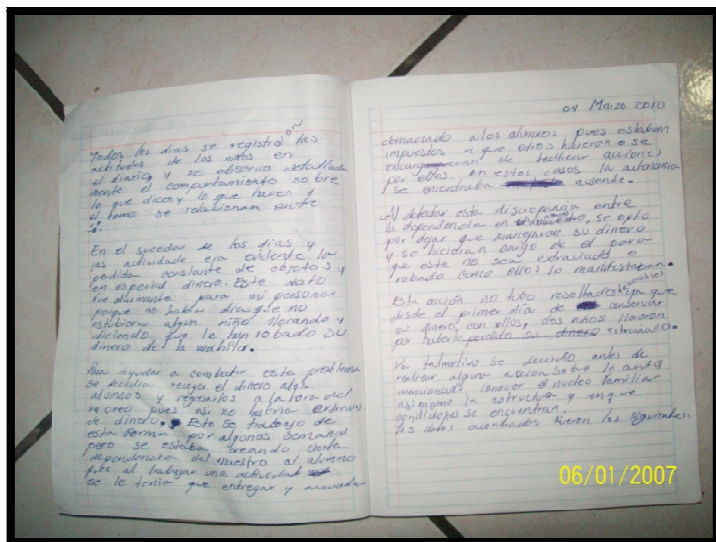 Todos los dias se registraron las
actitudes de los niños en
el diario, y se observo detallada
mente el comportamiento sobre
lo que dicen, lo que hacen y
el como se relacionan entre
si.
En el suceder de los dias y
las actividades era evidente la
perdida constante de objetos y
en especial dinero. Este dato
fue alarmante para mi persona
porque no habia dia que no
estubiera algun niño llorando y
diciendo que le han robado su
dinero de la mochila.
Para ayudar a combatir este problema
se decidio recoger el dinero a los
alumnos y regresarlos a la hora del
recreo pues asi no habria extravios
de dinero. Esto se trabajo de
esta forma por algunas semanas
pero se estaba creando cierta
dependencia del maestro al alumno
pues al trabajar una actividad
se le tenia que entregar y
04 Marzo 2010
demasiado a los alumnos pues estaban
impuestos a que otros hicieran o se
encargaran de realizar acciones
por ellos, en estos casos la autonomia
se encontraba ausente.
Al detectar esta discrepancia entre
la dependencia en se opto
por dejar que manejaran su dinero
y se hicieran cargo de el para
que este no sea extraviado o
robado como ellos lo manifestaban.
Esta acción no tubo resultados ya que
desde el primer dia de conservar
su dinero con ellos, dos niños lloraron
por haberlo perdido su dinero
Por tal motivo se decidio antes de
realizar alguna accion sobre lo antes
mencionado conocer el nucleo familiar
asi como la estructura y en que
condiciones se encontraban.
los datos encontrados fueron los siguientes:
06/01/2007